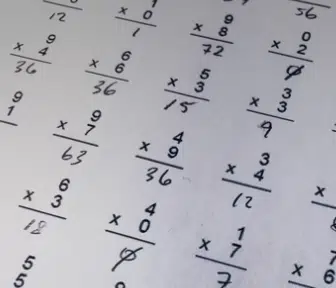 12
x 0
1
9
x 8
72
56
0
x 2
0
9
x 4
36
6
x 6
36
5
x 3
15
3
x 3
9
9
1
9
x 7
63
4
x 9
36
3
x 4
12
x
6
x 3
18
4
x 0
0
1
x 7
7
7
x 6
5
5